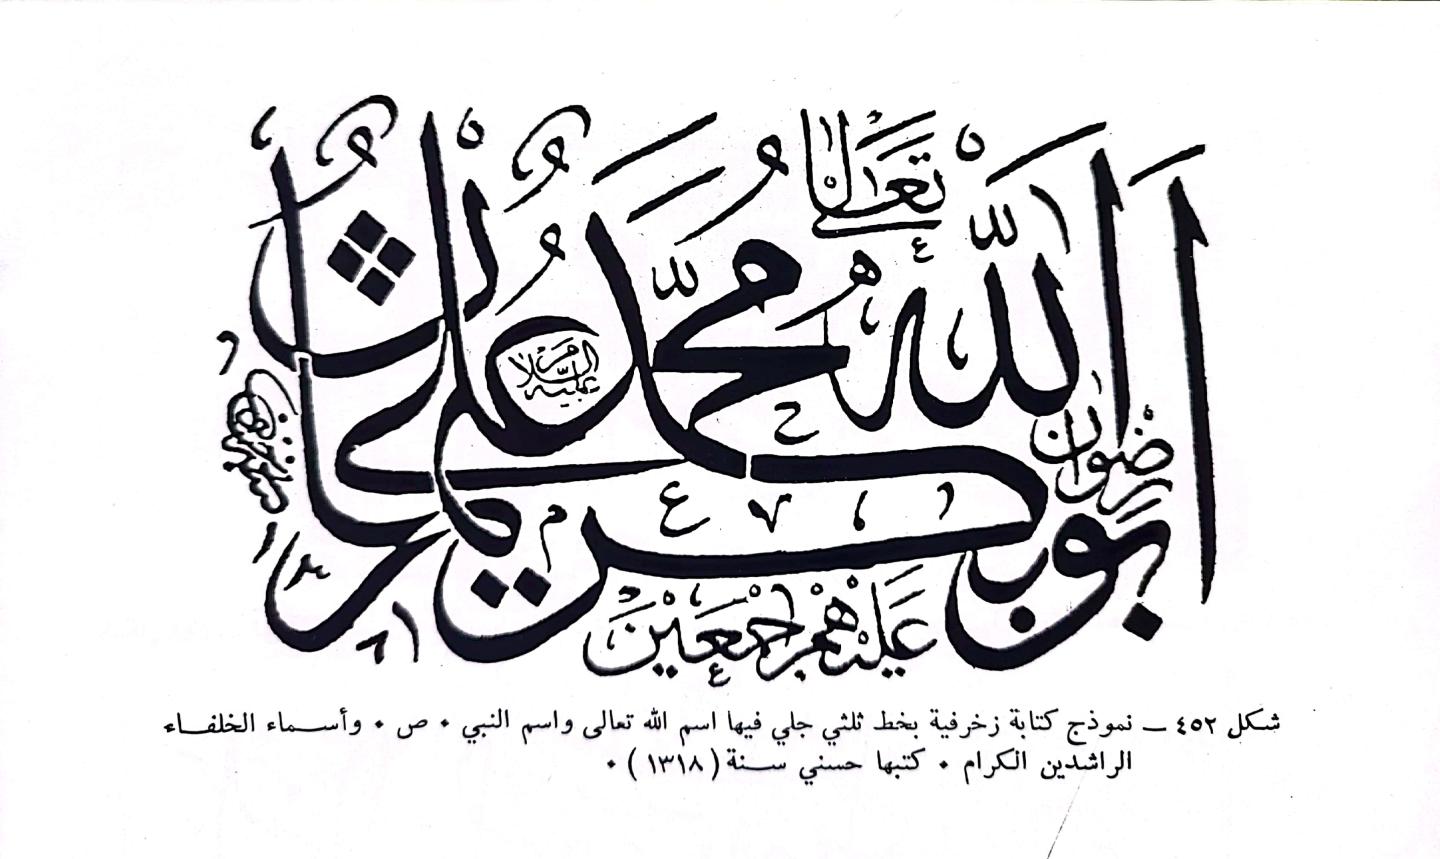 الله
تعالى
محمد
عليه السلام
ابو بكر عمر عثمان علي
رضوان
عليهم اجمعين
شكل ٤٥٢ ــ نموذج كتابة زخرفية بخط ثلثي جلي فيها اسم الله تعالى واسم النبي • ص • وأسماء الخلفاء
الراشدين الكرام • كتبها حسني سنة (١٣١٨) •